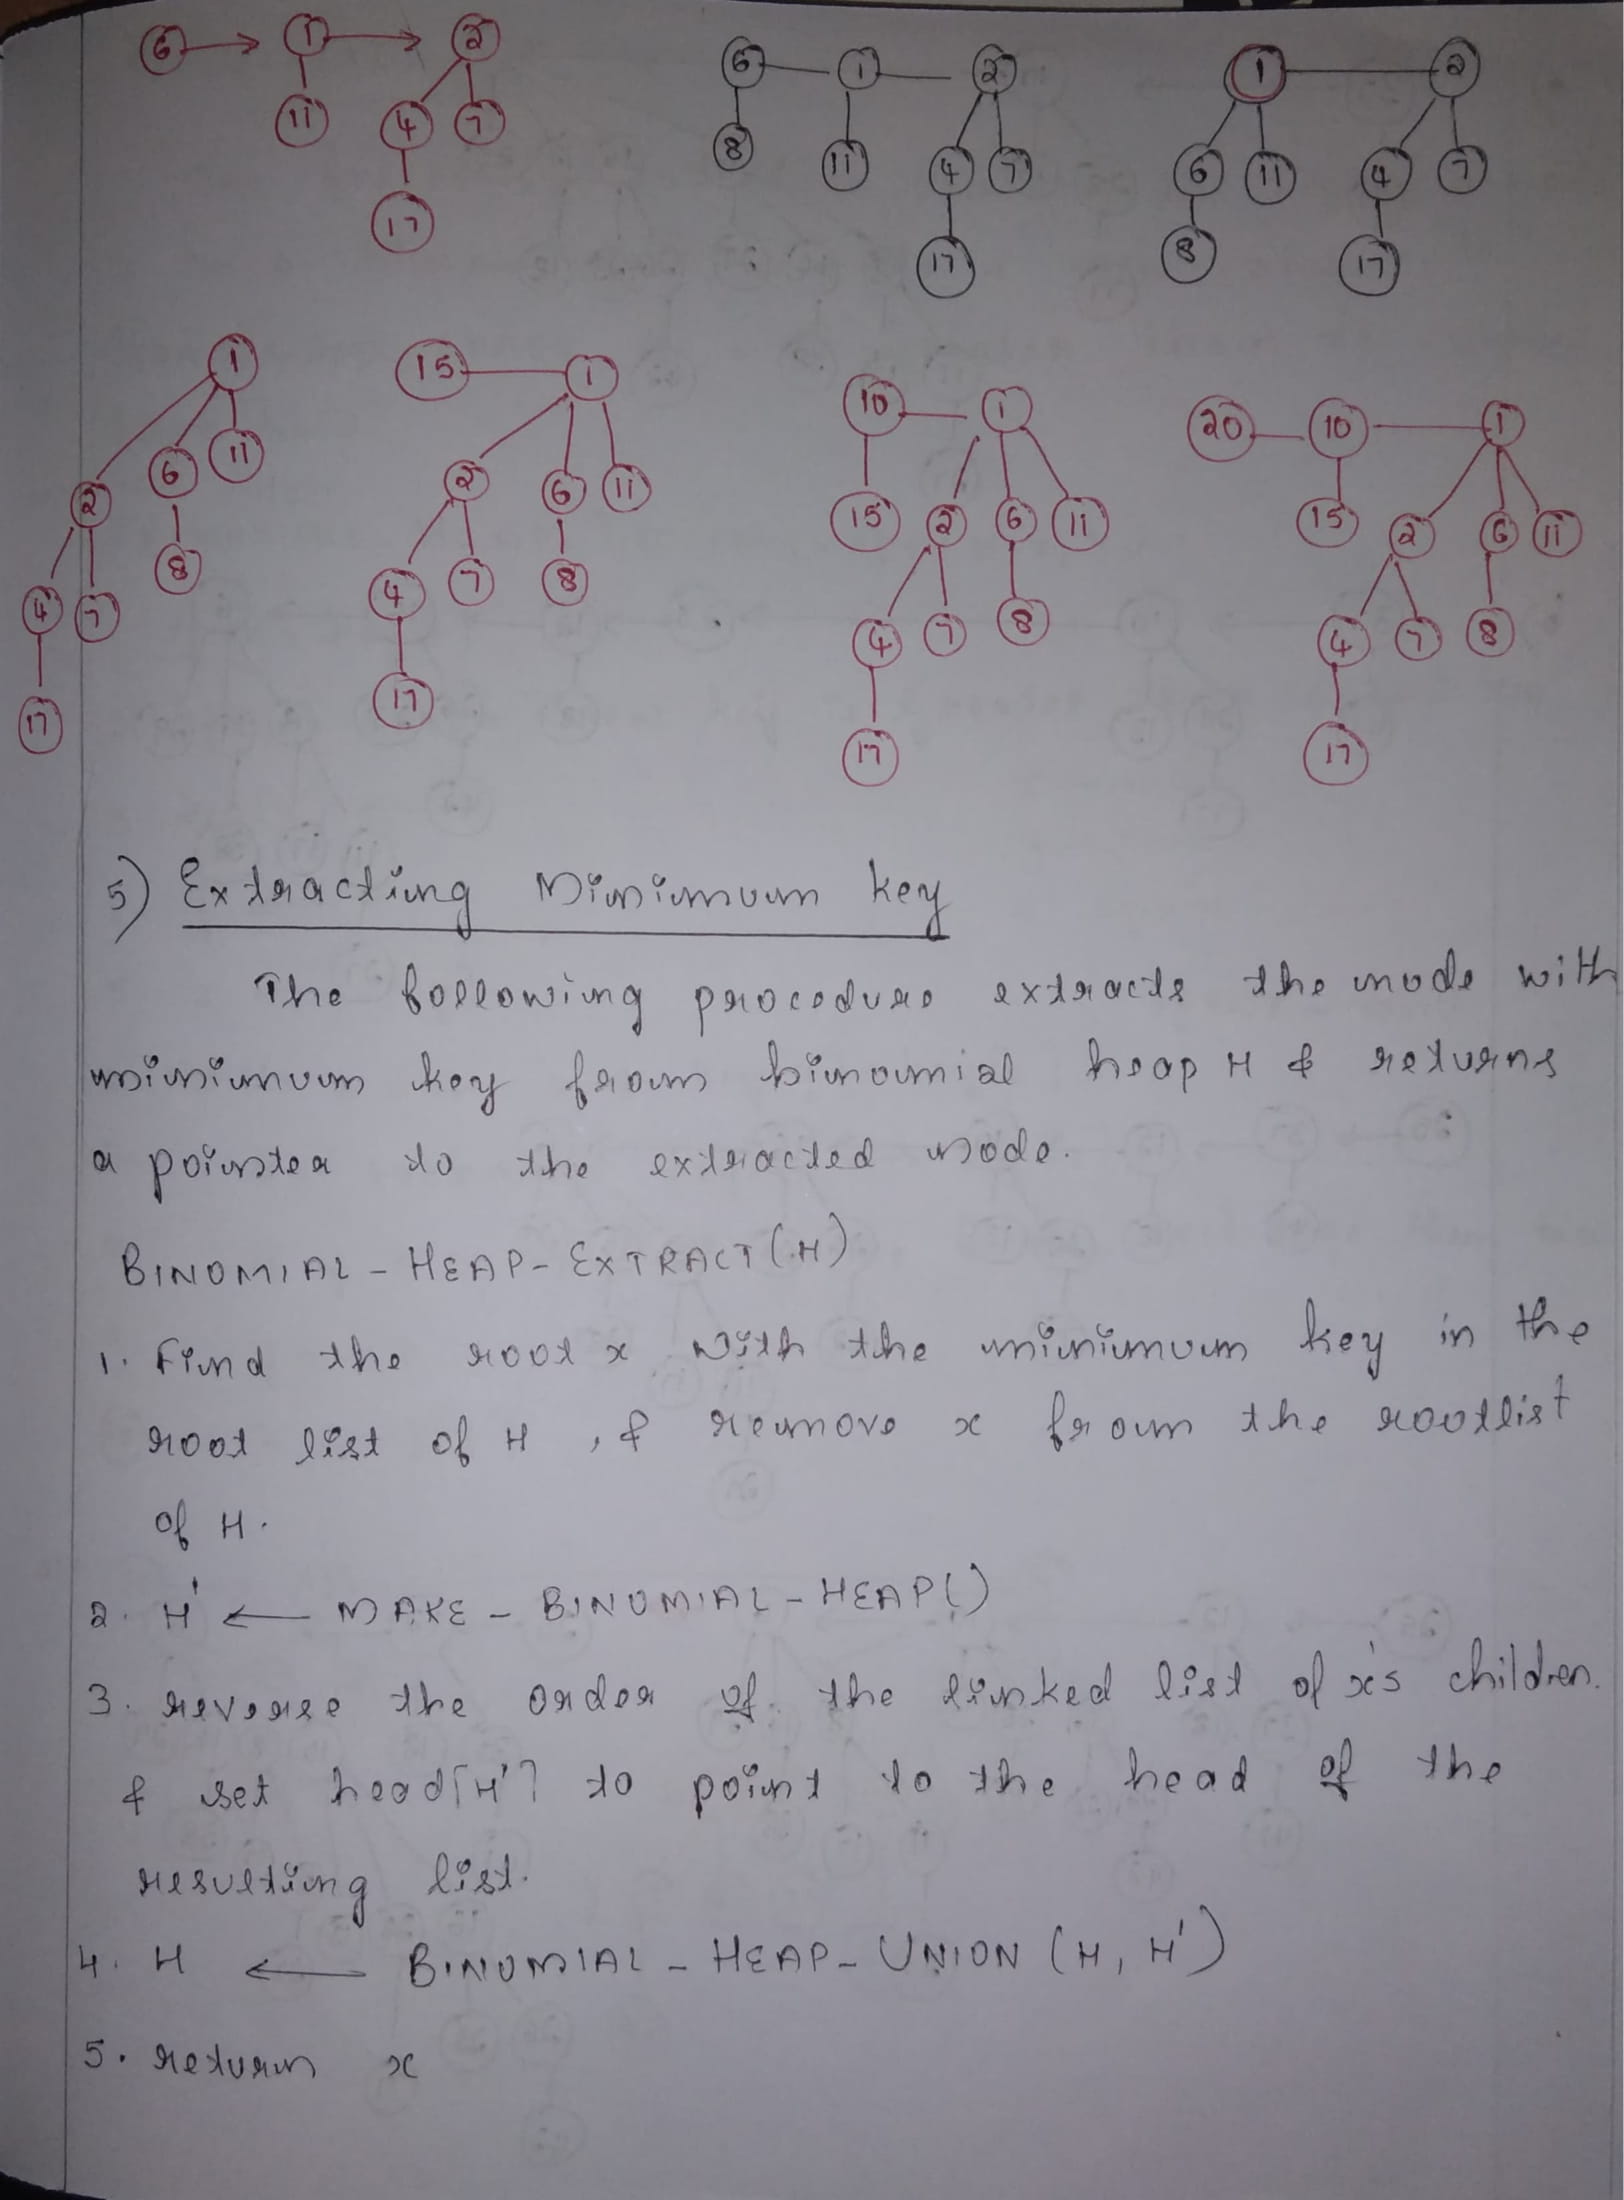 6 1 2
11 4 7
17
6 1 2
8 11 4 7
17
1 2
6 11 4 7
8 17
1
2 6 11
4 7 8
17
15 1
2 6 11
4 7 8
17
10 1
15 2 6 11
4 7 8
17
20 10 1
15 2 6 11
4 7 8
17
5) Extracting Minimum key
The following procedure extracts the node with
minimum key from binomial heap H & returns
a pointer to the extracted node.
BINOMIAL - HEAP - EXTRACT (H)
1. Find the root x with the minimum key in the
root list of H , & remove x from the rootlist
of H.
2. H' ← MAKE - BINOMIAL - HEAP()
3. reverse the order of the linked list of x's children.
& set head[H'] to point to the head of the
resulting list.
4. H ← BINOMIAL - HEAP - UNION (H, H')
5. return x